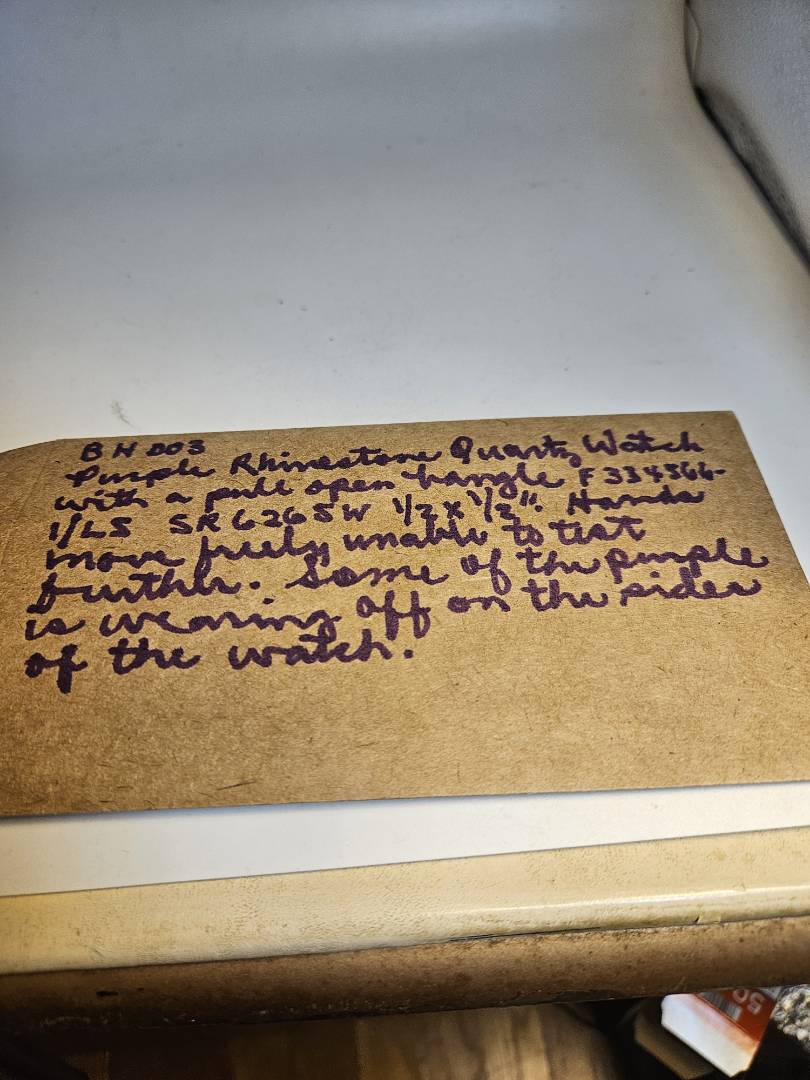 BN 003
Purple Rhinestone Quartz Watch
with a pull open bangle F334566-
1/LS SR626SW 1/2 x 1/2". Hands
move freely unable to test
further. Some of the purple
is wearing off on the sides
of the watch.
50